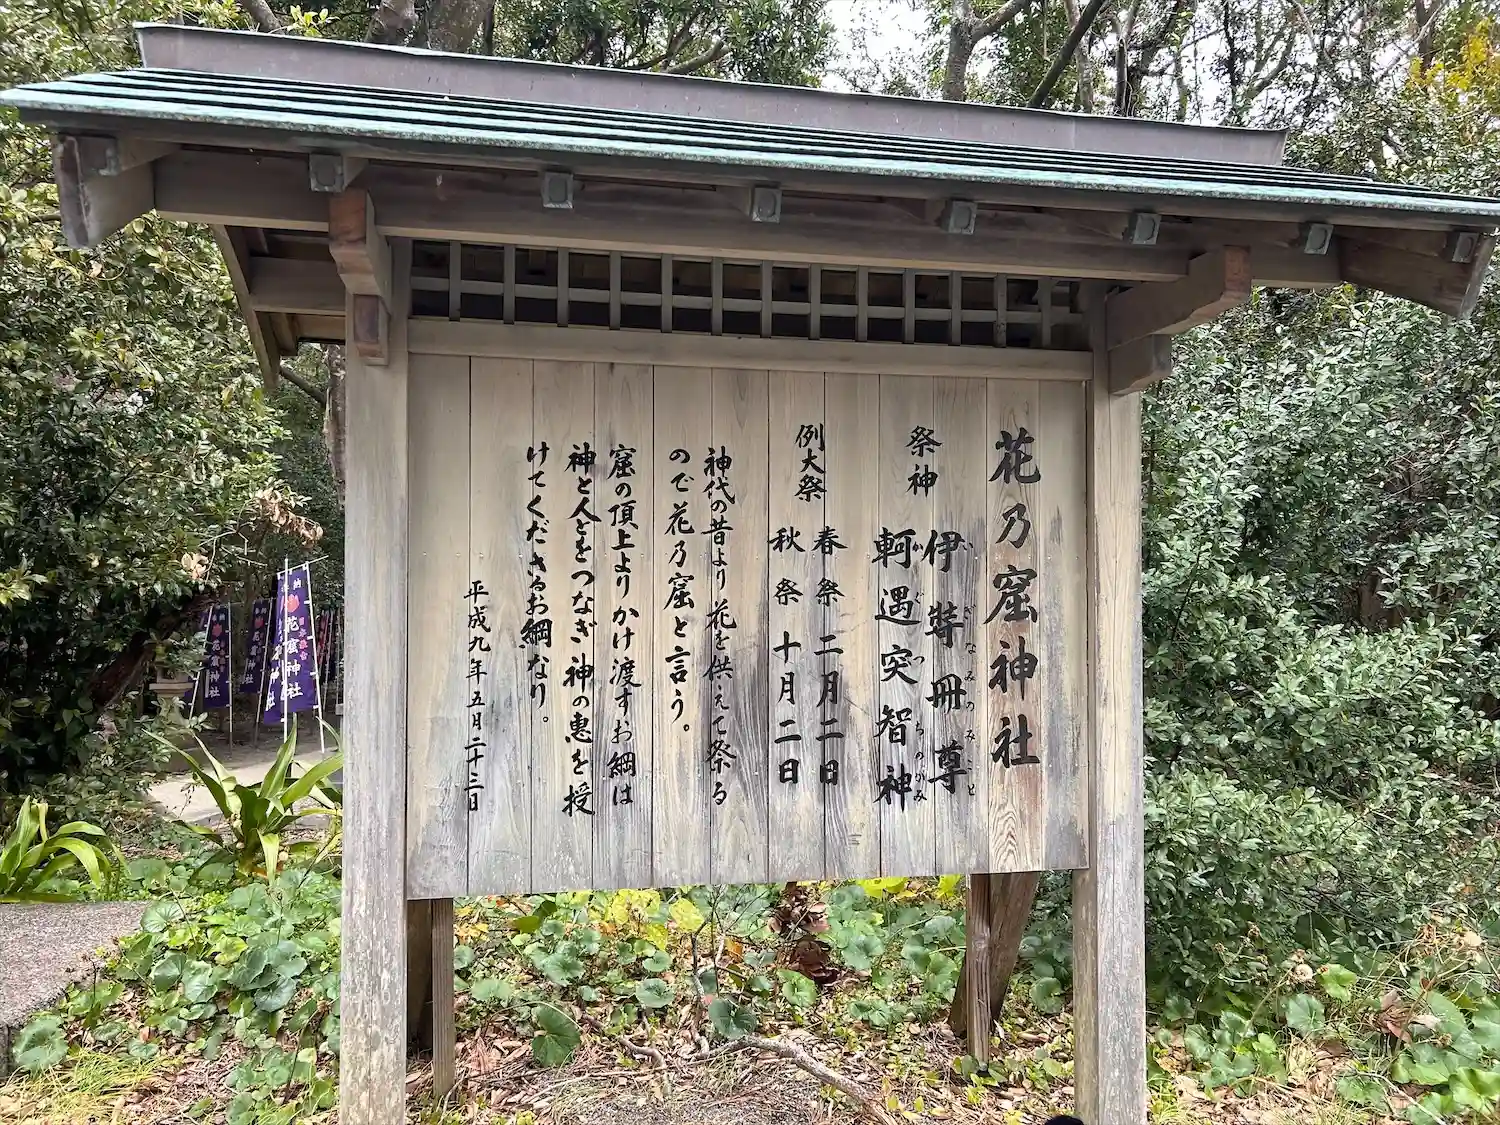 花乃窟神社
祭神
伊弉冊尊
いざなみのみこと
軻遇突智神
かぐつちのかみ
例大祭
春祭 二月二日
秋祭 十月二日
神代の昔より花を供えて祭る
ので花乃窟と言う。
窟の頂上よりかけ渡すお綱は
神と人とをつなぎ神の恵を授
けてくださるお綱なり。
平成九年五月二十三日
奉納
花窟神社
花窟神社